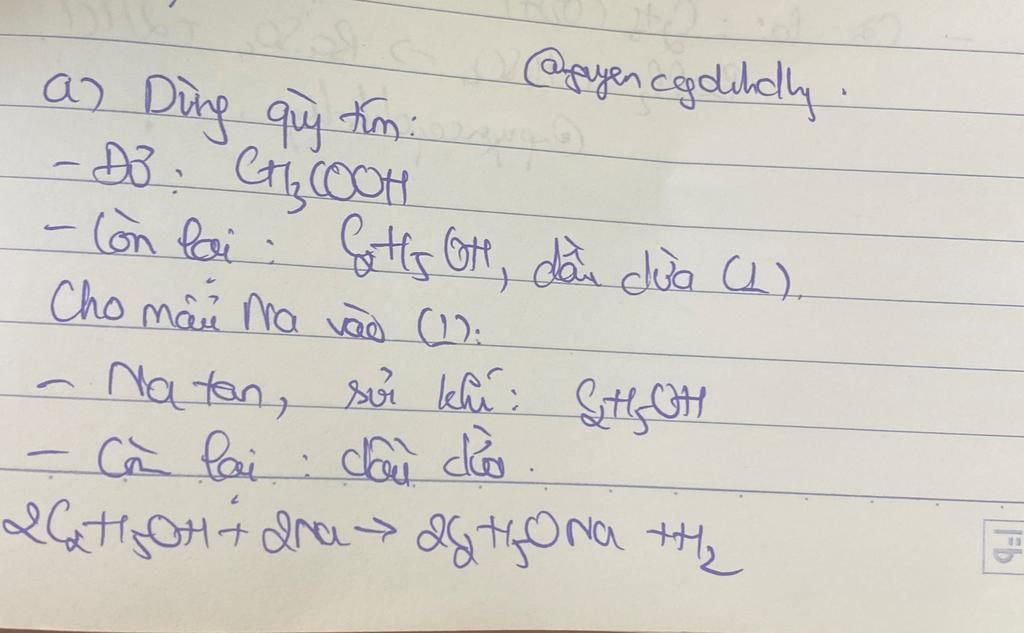 @nguyencgdihdly.
a) Dùng quỳ tím:
- Đỏ: CH₃COOH
- Còn lại: C₂H₅OH, dầu dừa (1).
Cho mẩu Na vào (1):
- Na tan, sủi khí: C₂H₅OH
- Còn lại: dầu dừa.
2C₂H₅OH + 2Na → 2C₂H₅ONa + H₂